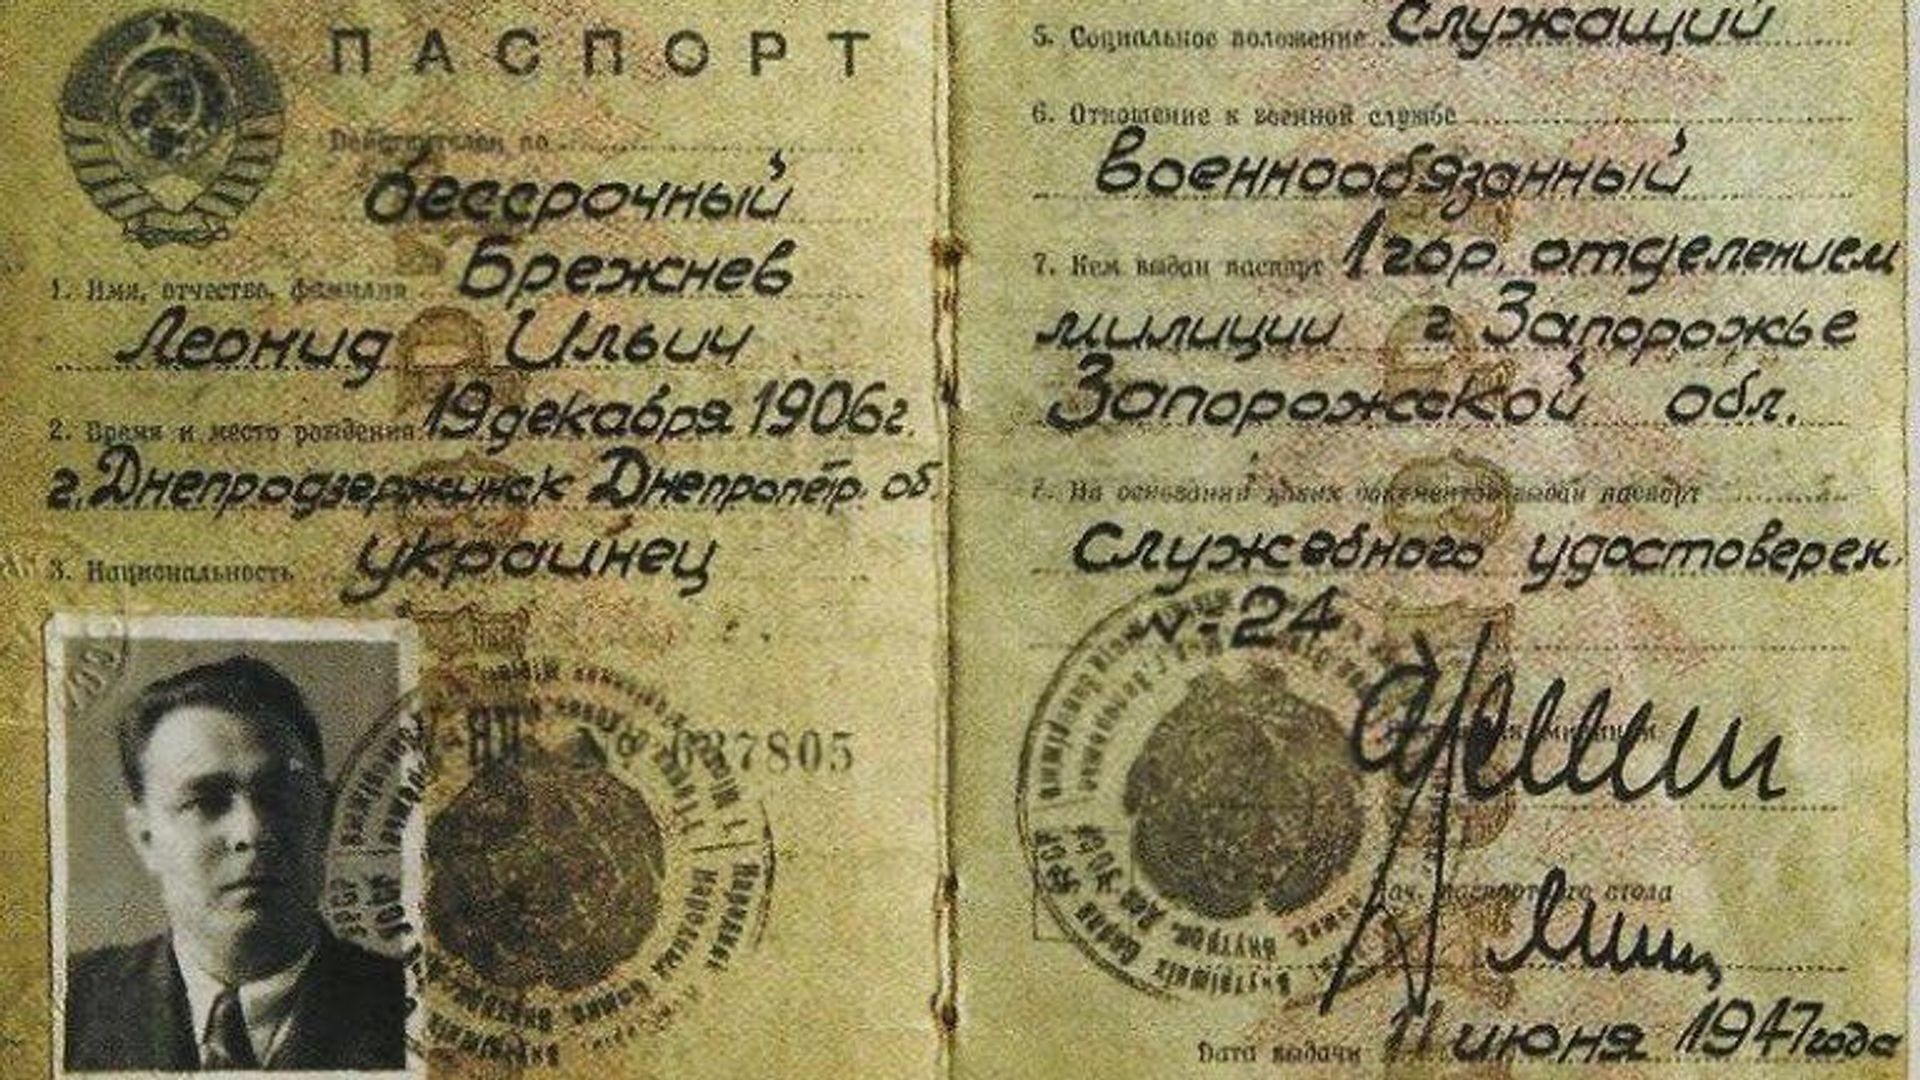 ПАСПОРТ
Действителен по
бессрочный
1. Имя, отчество, фамилия Брежнев
Леонид Ильич
2. Время и место рождения 19 декабря 1906 г.
г. Днепродзержинск Днепропетр. об.
3. Национальность украинец
№ 637805
5. Социальное положение Служащий
6. Отношение к военной службе
Военнообязанный
7. Кем выдан паспорт 1 гор. отделением
милиции г. Запорожье
Запорожской обл.
8. На основании каких документов выдан паспорт
Служебного удостоверен.
№-24
Нач. паспортного стола
Дата выдачи 11 июня 1947 года